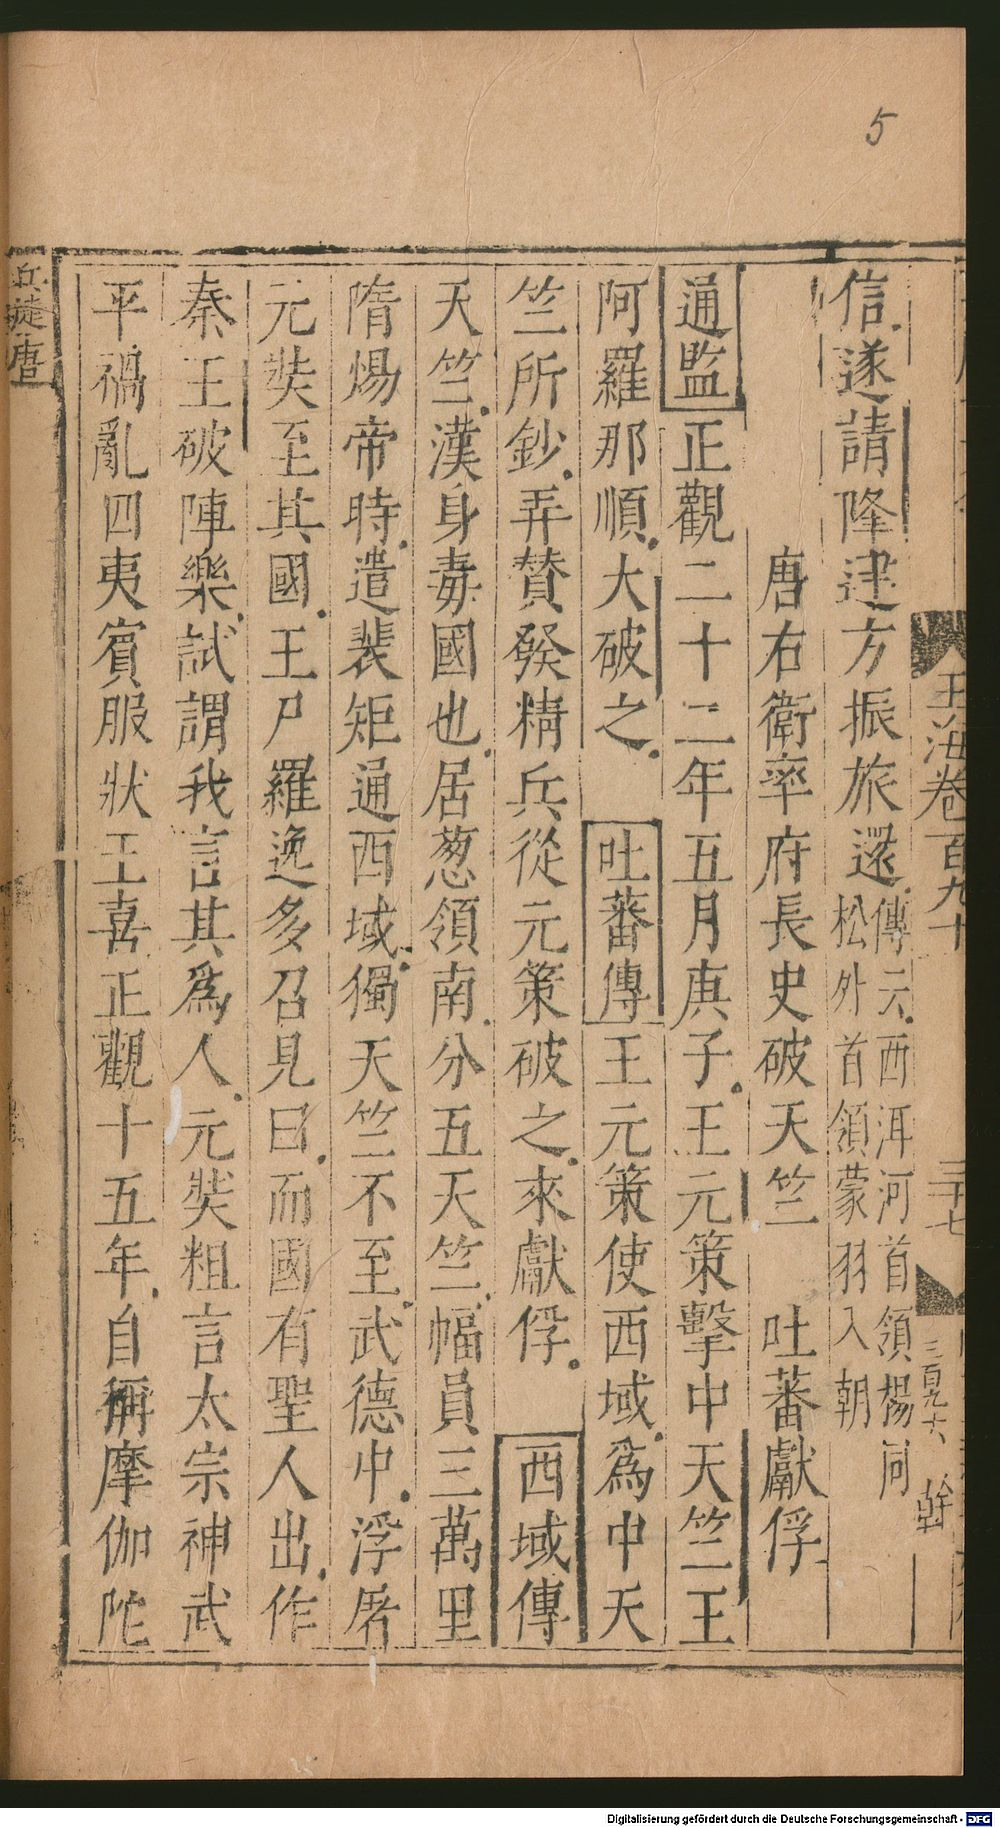 5
玉海卷百九十
三十七
三百九十六
幹
信遂請隆建方振旅還傳云西洱河首領楊同
松外首領蒙羽入朝
唐右衛率府長史破天竺 吐蕃獻俘
通監正觀二十二年五月庚子王元策擊中天竺王
阿羅那順大破之 吐蕃傳王元策使西域為中天
竺所鈔弄贊發精兵從元策破之來獻俘 西域傳
天竺漢身毒國也居葱領南分五天竺幅員三萬里
隋煬帝時遣裴矩通西域獨天竺不至武德中浮屠
元奘至其國王尸羅逸多召見曰而國有聖人出作
秦王破陣樂試謂我言其為人元奘粗言太宗神武
平禍亂四夷賓服狀王喜正觀十五年自稱摩伽陀
兵徒唐
Digitalisierung gefördert durch die Deutsche Forschungsgemeinschaft - DFG